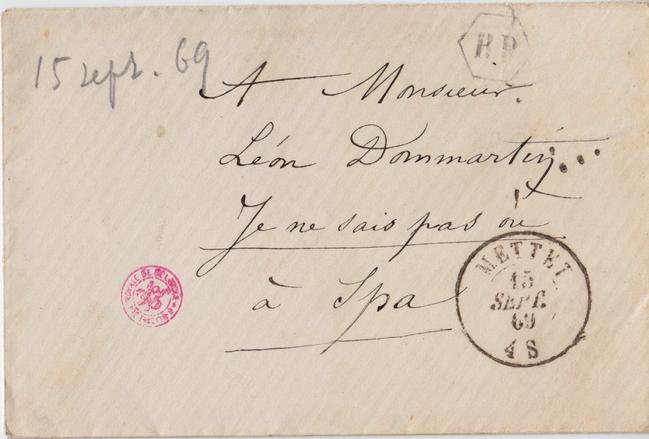 15 sept. 69
BP
A Monsieur
Léon Dommartin...
Je ne sais pas où
à Spa
METTET
15
SEPT.
69
4 S